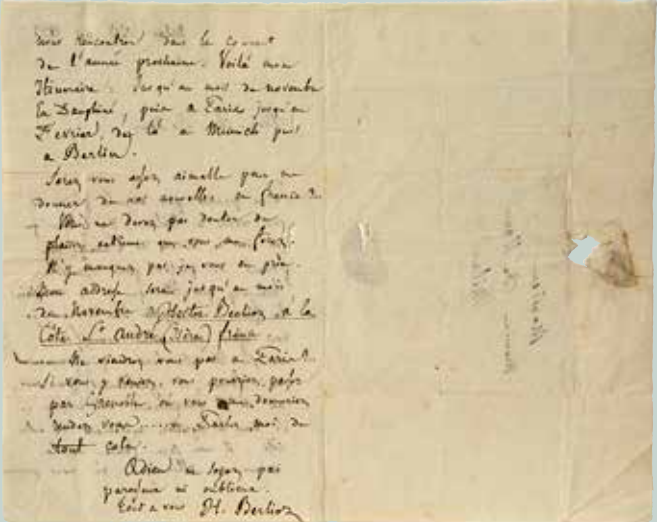 nous rencontrer dans le courant
de l'année prochaine. Voilà mon
Itinéraire. Jusqu'au mois de novembre
en Dauphiné, puis a Paris jusqu'en
Fevrier, de là a Munich puis
a Berlin.
Serez vous assez aimable pour me
donner de vos nouvelles en france?
Vous ne devez pas douter du
plaisir extreme que vous me ferez.
N'y manquez pas je vous en prie.
Mon adresse sera jusqu'au mois
de Novembre a Hector Berlioz, à la
Côte St André (Isère) france
Ne viendrez vous pas a Paris?
Si vous y venez, vous pourriez passer
par Grenoble, où vous me donneriez
rendez vous Parlez moi de
tout cela.
Adieu ne soyez pas
paresseux ni oublieux.
Tout a vous H. Berlioz